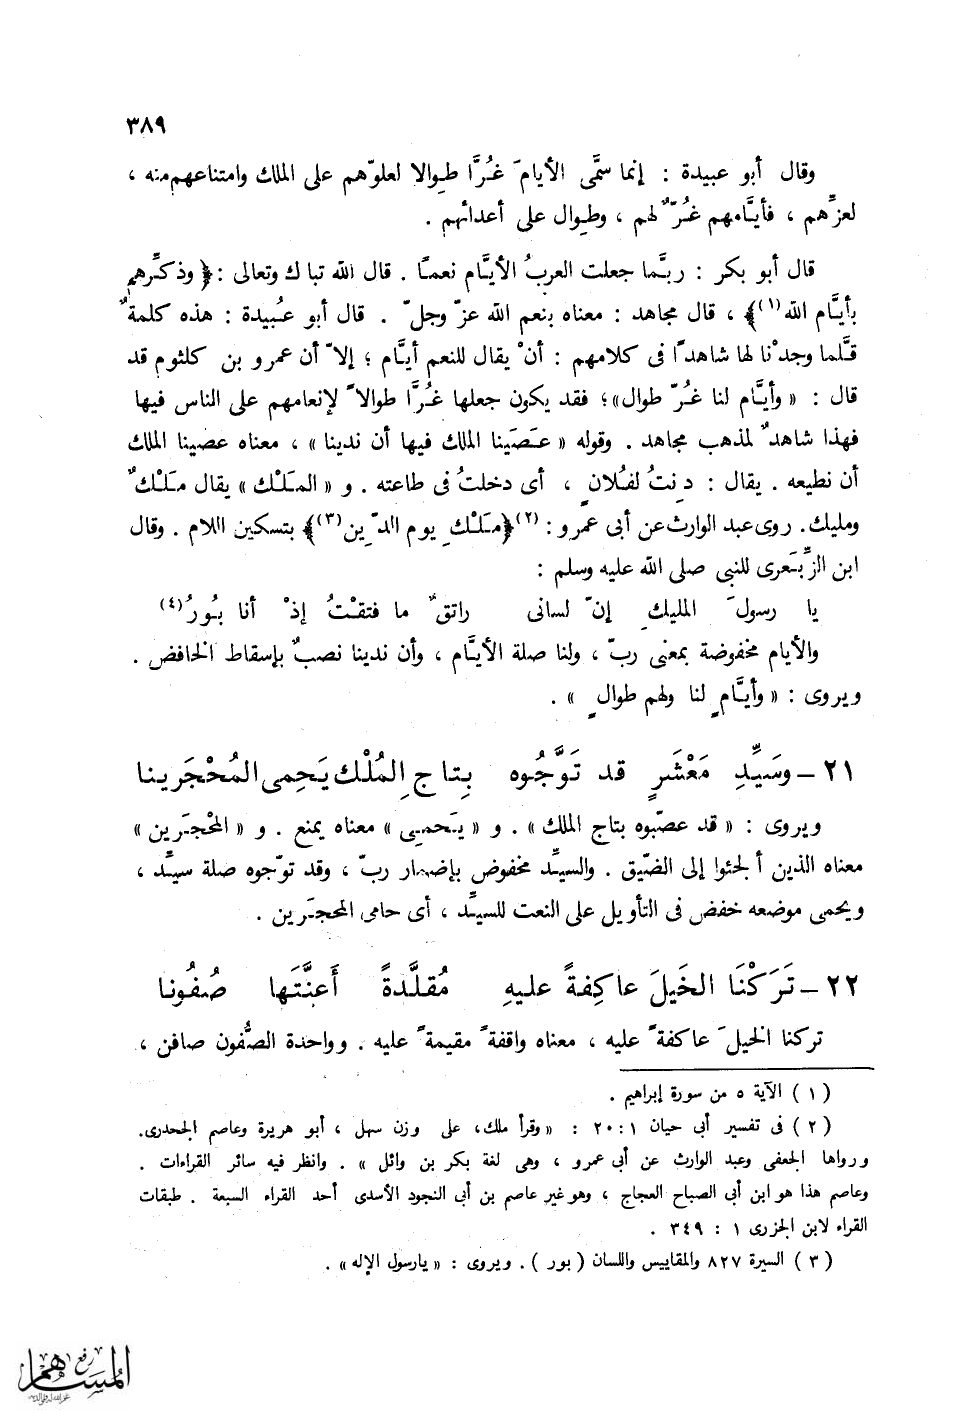 ٣٨٩
وقال أبو عبيدة : إنما سمَّى الأيامَ غُرَّا طِوالا لعلوّهم على الملك وامتناعهم منه ،
لعزِّهم ، فأيَّامهم غُرّ ٌ لهم ، وطِوال على أعدائهم .
قال أبو بكر : ربَّما جعلت العربُ الأيَّام نعمًا . قال الله تبا ك وتعالى : ﴿ وذكِّرهم
بأيَّام الله(١)﴾ ، قال مجاهد : معناه بنعم الله عزّ وجلّ . قال أبو عُبيدة : هذه كلمةٌ
قلَّما وجدْنا لها شاهدًا فى كلامهم : أنْ يقال للنعم أيَّام ؛ إلاّ أن عمرو بن كلثوم قد
قال : « وأيَّام لنا غُرّ طوال» ؛ فقد يكون جعلها غُرَّا طوالاً لإنعامهم على الناس فيها
فهذا شاهدٌ لمذهب مجاهد . وقوله « عَصَينا الملك فيها أن ندينا » ، معناه عصينا الملك
أن نطيعه . يقال : دِنتُ لفُلانٍ ، أى دخلتُ فى طاعته . و « المَلْك » يقال مَلْكٌ
ومليك. روى عبد الوارث عن أبى عمرو : (٢) ﴿مَلْكِ يوم الدِّين(٣)﴾ بتسكين اللام . وقال
ابن الزِّبَعرى للنبى صلى الله عليه وسلم :
يا رسولَ المليكِ إنّ لسانى راتقٌ ما فتقْتُ إذْ أنا بُورُ(٤)
والأيام مخفوضة بمعنى ربّ ، ولنا صلة الأيَّام ، وأن ندينا نصبٌ بإسقاط الخافض .
ويروى : « وأيَّامٍ لنا ولهم طوالٍ » .
٢١ – وسَيِّدِ مَعْشَرٍ قد تَوَّجُوه بِتاجِ المُلْك يَحمِى المُحْجَرينا
ويروى : « قد عصّبوه بتاج الملك » . و « يَحمِى » معناه يمنع . و « المُحْجَرَين »
معناه الذين أُلجئوا إلى الضّيق . والسيِّد مخفوض بإضمار ربّ ، وقد توّجوه صلة سيِّد ،
ويحمى موضعه خفض فى التأويل على النعت للسيِّد ، أى حامى المحجَرين .
٢٢ – تَرَكْنَا الخَيلَ عاكِفةً عليهِ مُقلَّدةً أَعنَّتَها صُفُونا
تركنا الخيلَ عاكفةً عليه ، معناه واقفةً مقيمةً عليه . وواحدة الصُّفون صافن ،
( ١ ) الآية ٥ من سورة إبراهيم .
( ٢ ) فى تفسير أبى حيان ١ : ٢٠ : « وقرأ ملك ، على وزن سهل ، أبو هريرة وعاصم الجحدرى.
ورواها الجعفى وعبد الوارث عن أبى عمرو ، وهى لغة بكر بن وائل » . وانظر فيه سائر القراءات .
وعاصم هذا هو ابن أبى الصباح العجاج ، وهو غير عاصم بن أبى النجود الأسدى أحد القراء السبعة . طبقات
القراء لابن الجزرى ١ : ٣٤٩ .
( ٣ ) السيرة ٨٢٧ والمقاييس واللسان ( بور ) . ويروى : « يا رسول الإله » .